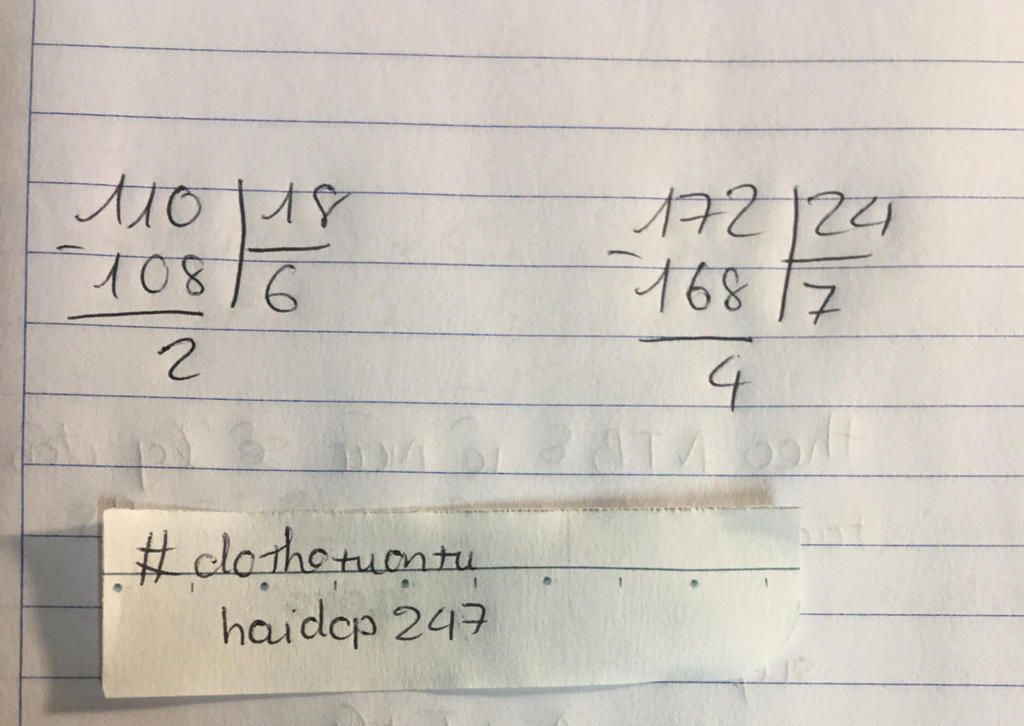 110 | 18
- 108 | 6
2
172 | 24
- 168 | 7
4
#clothotuontu
haidcp 247